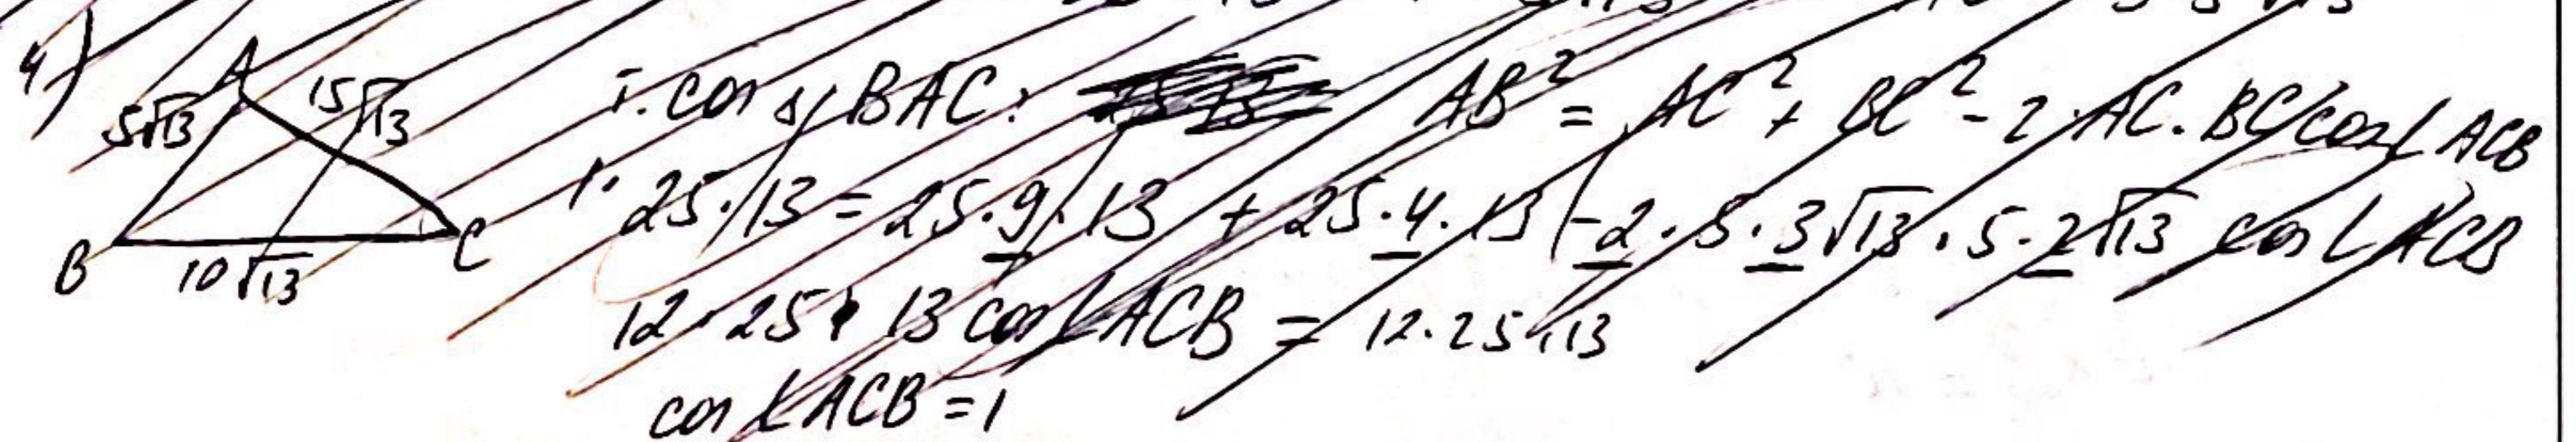 4)
A
5√13
15√13
B
10√13
C
т. cos у BAC: AB² = AC² + BC² - 2·AC·BC·cos∠ACB
25·13 = 25·9·13 + 25·4·13 - 2·5·3√13·5·2√13 cos∠ACB
12·25·13 cos∠ACB = 12·25·13
cos∠ACB = 1